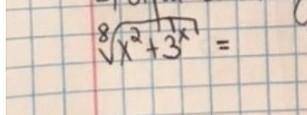 ⁸√(x² + 3ˣ) =